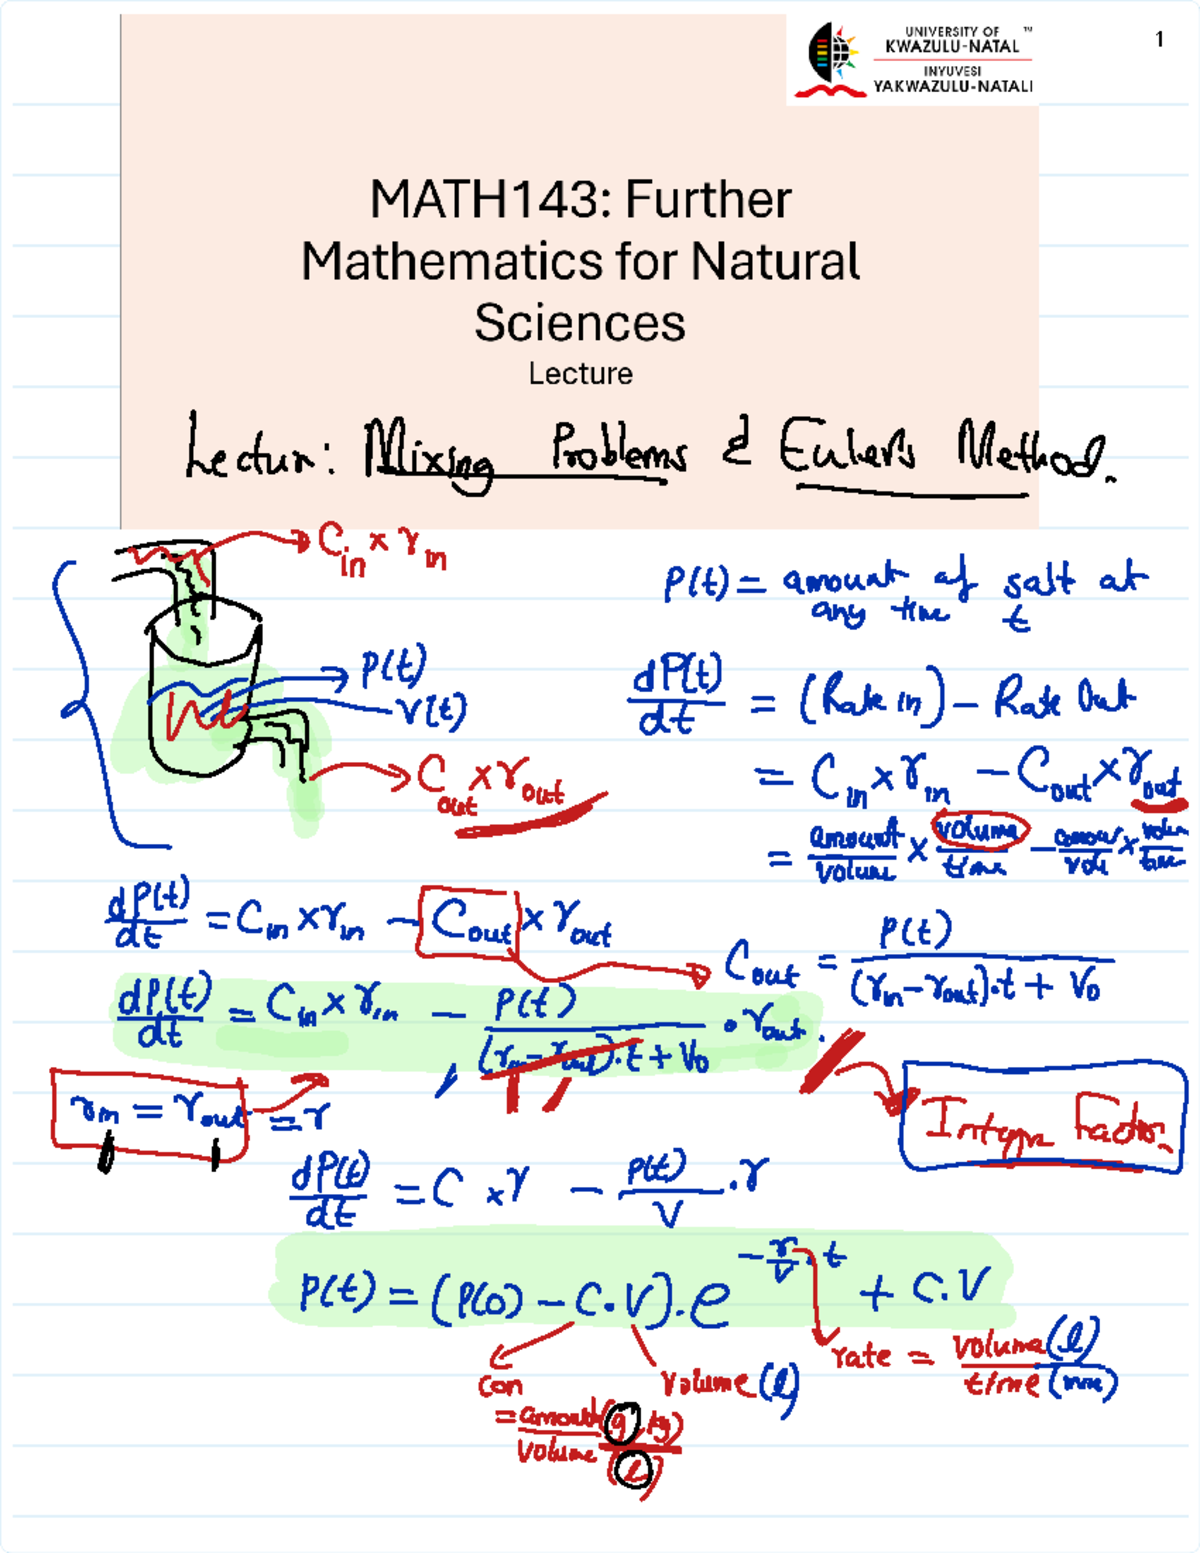 UNIVERSITY OF ™
KWAZULU-NATAL
INYUVESI
YAKWAZULU-NATALI
1
MATH143: Further
Mathematics for Natural
Sciences
Lecture
Lecture: Mixing Problems & Euler's Method.
C_in × r_in
P(t)
V(t)
C_out × r_out
P(t) = amount of salt at
any time t
dP(t)/dt = (Rate in) - Rate Out
= C_in × r_in - C_out × r_out
= amount/volume × volume/time - amount/volu × volum/time
dP(t)/dt = C_in × r_in - C_out × r_out
C_out = P(t)/((r_in - r_out)·t + V_0)
dP(t)/dt = C_in × r_in - P(t)/((r_in - r_out)·t + V_0) · r_out.
r_in = r_out = r
Factor.
dP(t)/dt = C × r - P(t)/V · r
P(t) = (P(0) - C·V)·e^(-r/V·t) + C.V
rate = volume(l)/time(min)
Con
volume (l)
= amount(g, kg)/volume (l)